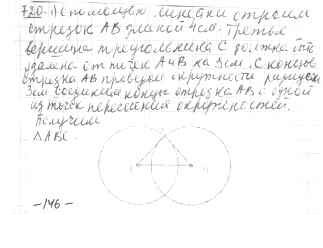 720. С помощью линейки строим
отрезок AB длиной 4см. Третья
вершина треугольника C должна быть
удалена от точек A и B на 3см. С концов
отрезка AB проводим окружности радиусом
3см. Соединим концы отрезка AB с одной
из точек пересечения окружностей.
Получим
△ABC.
-146-